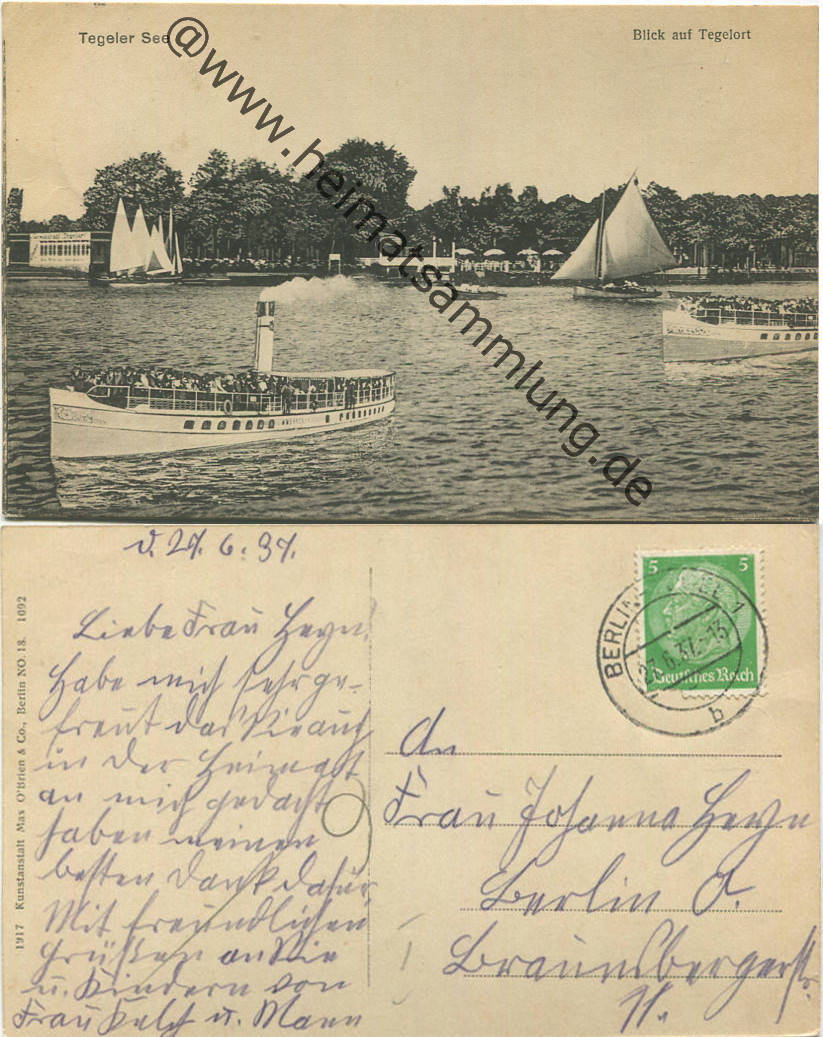 Tegeler See
Blick auf Tegelort
@www.heimatsammlung.de
d. 27. 6. 37.
Liebe Frau Heyn.
Habe mich sehr ge-
freut das Sie auch
in der Heimatt
an mich gedacht
haben meinen
besten Dank dafür,
Mit freundlichen
Grüßen an Sie
u. Kindern von
Frau u. Mann
1917 Kunstanstalt Max O'Brien & Co., Berlin NO. 18. 1092
5 5
Deutsches Reich
BERLIN 1
6.37.-13
b
An
Frau Johanna Heyn
Berlin O.
Braunsbergerstr.
11.